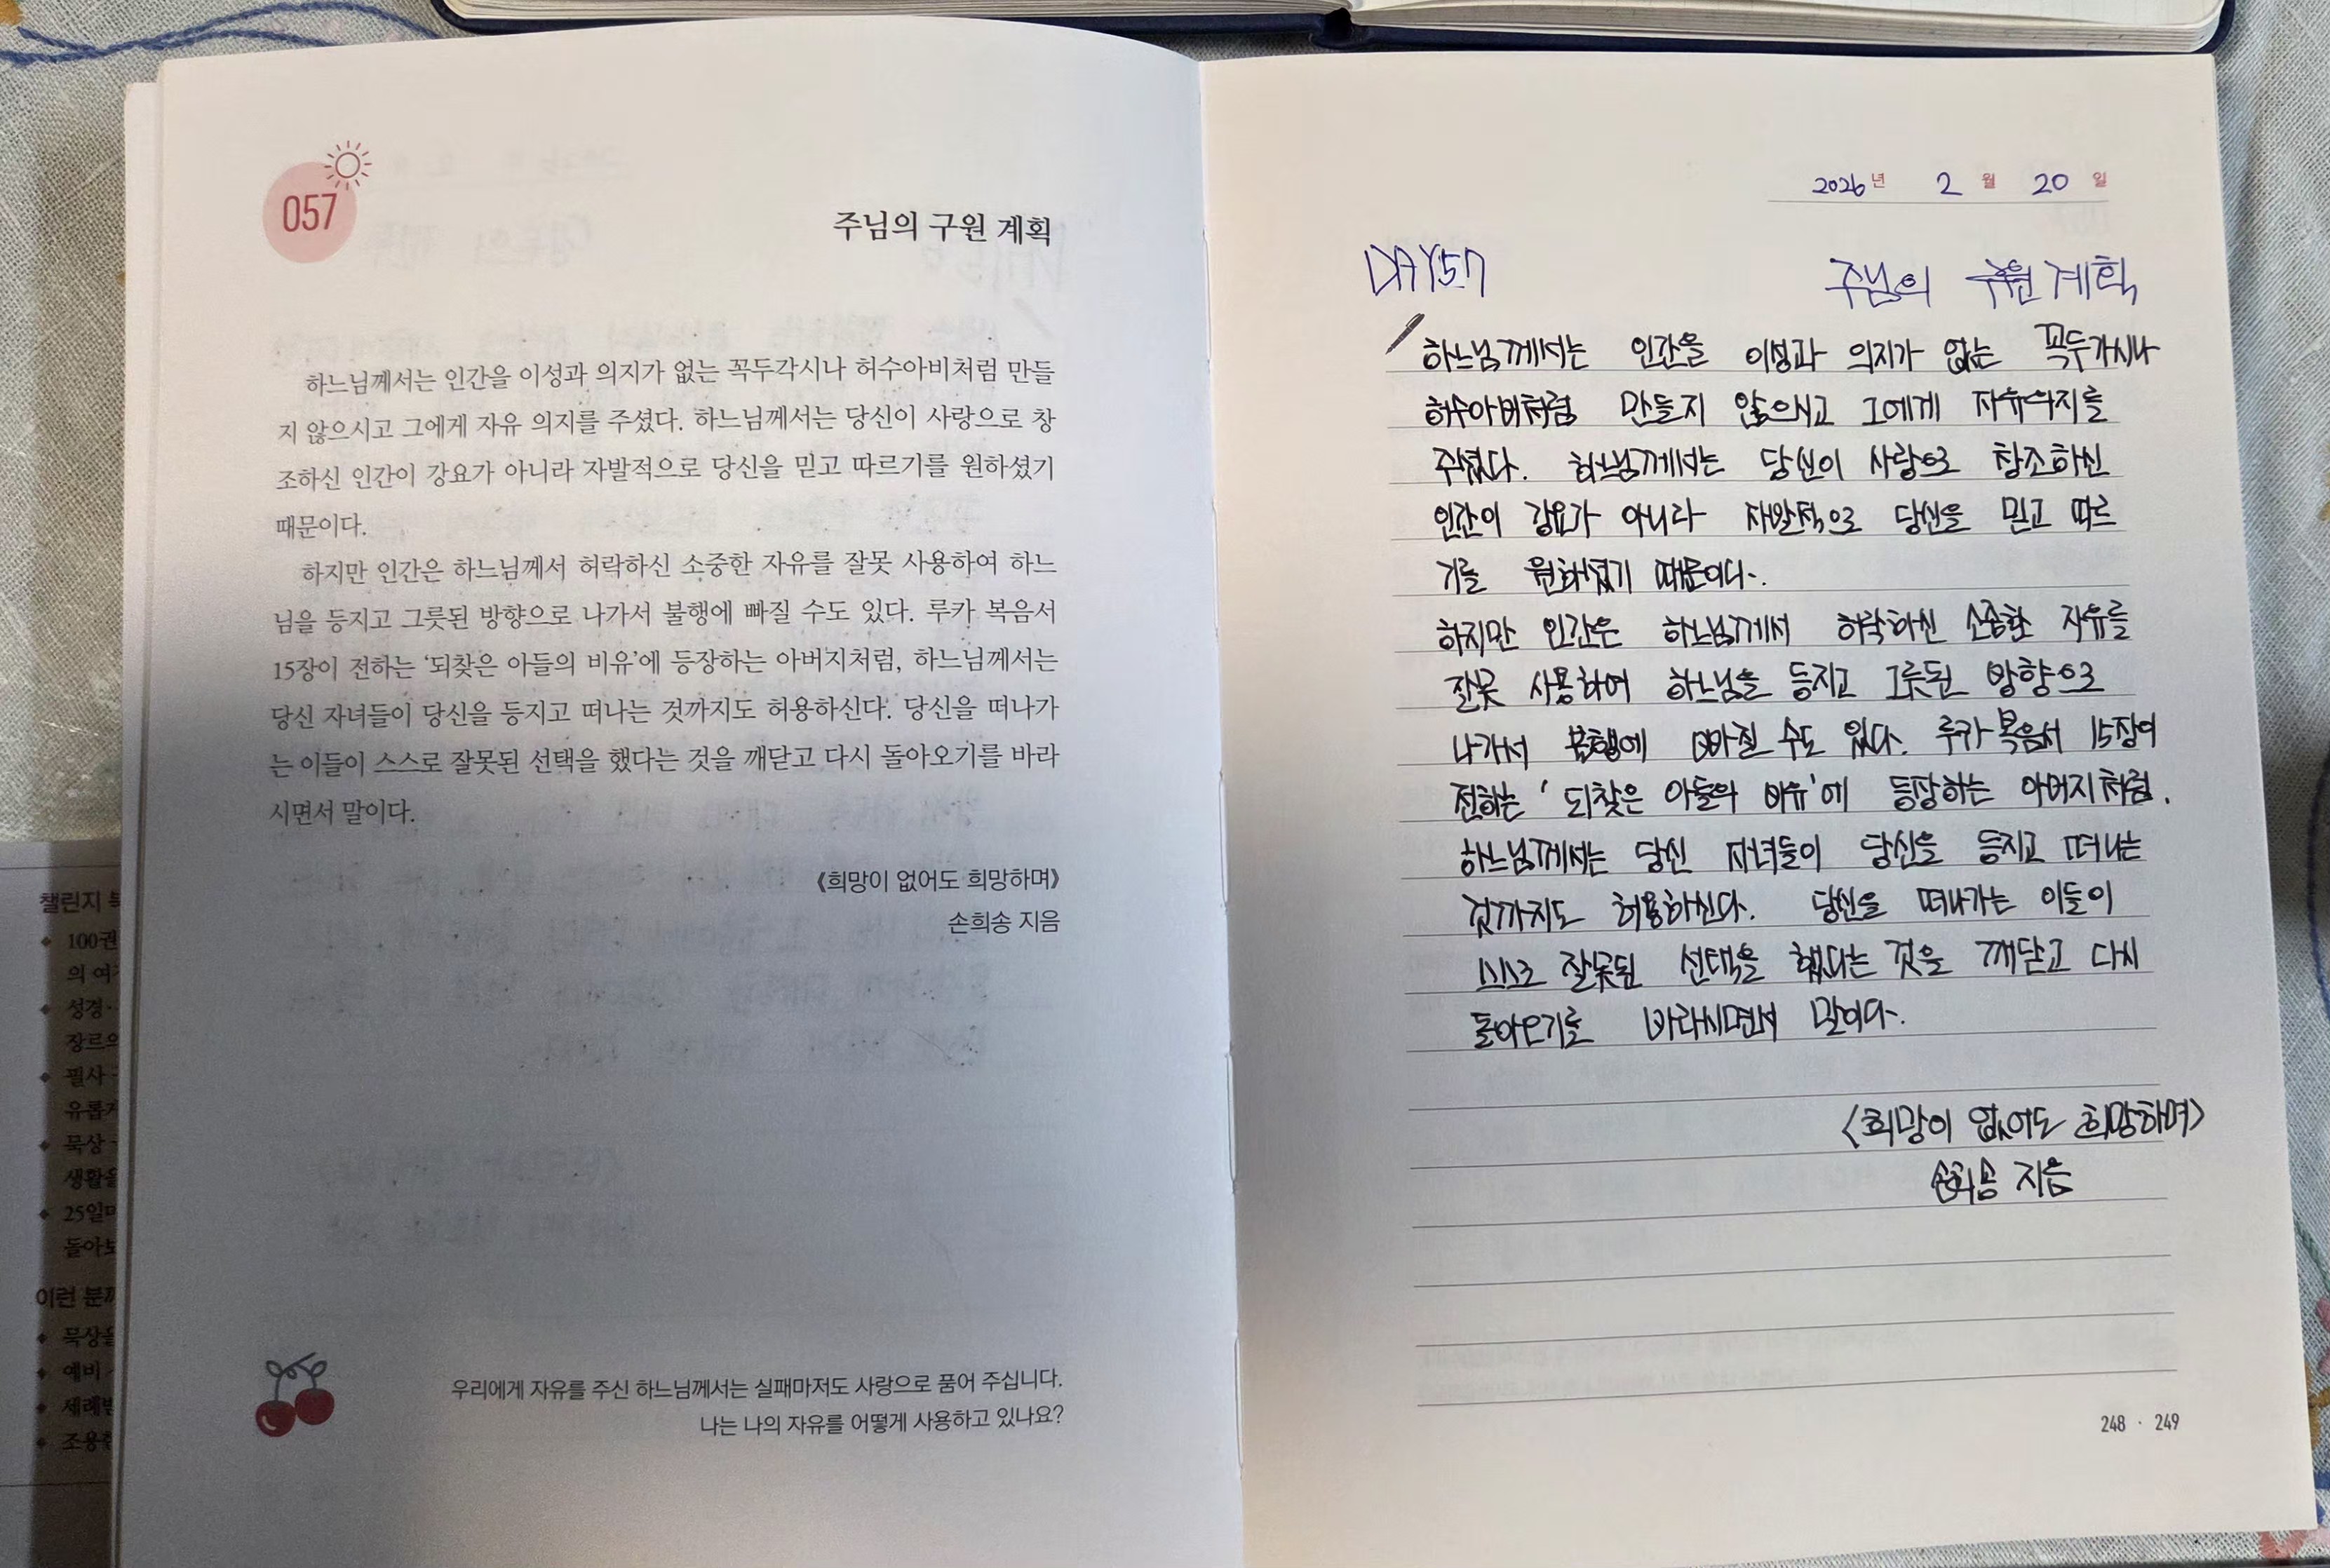 057
주님의 구원 계획
하느님께서는 인간을 이성과 의지가 없는 꼭두각시나 허수아비처럼 만들
지 않으시고 그에게 자유 의지를 주셨다. 하느님께서는 당신이 사랑으로 창
조하신 인간이 강요가 아니라 자발적으로 당신을 믿고 따르기를 원하셨기
때문이다.
하지만 인간은 하느님께서 허락하신 소중한 자유를 잘못 사용하여 하느
님을 등지고 그릇된 방향으로 나가서 불행에 빠질 수도 있다. 루카 복음서
15장이 전하는 ‘되찾은 아들의 비유’에 등장하는 아버지처럼, 하느님께서는
당신 자녀들이 당신을 등지고 떠나는 것까지도 허용하신다. 당신을 떠나가
는 이들이 스스로 잘못된 선택을 했다는 것을 깨닫고 다시 돌아오기를 바라
시면서 말이다.
《희망이 없어도 희망하며》
손희송 지음
우리에게 자유를 주신 하느님께서는 실패마저도 사랑으로 품어 주십니다.
나는 나의 자유를 어떻게 사용하고 있나요?
챌린지
100권
의 여
성경·
장르의
필사
유롭게
묵상
생활을
25일마
돌아보
이런 분께
묵상을
예비
세례받
조용한
2026년 2월 20일
DAY57
주님의 구원 계획
하느님께서는 인간을 이성과 의지가 없는 꼭두각시나
허수아비처럼 만들지 않으시고 그에게 자유의지를
주셨다. 하느님께서는 당신이 사랑으로 창조하신
인간이 강요가 아니라 자발적으로 당신을 믿고 따르
기를 원하셨기 때문이다.
하지만 인간은 하느님께서 허락하신 소중한 자유를
잘못 사용하여 하느님을 등지고 그릇된 방향으로
나가서 불행에 빠질 수도 있다. 루카 복음서 15장이
전하는 ‘되찾은 아들의 비유’에 등장하는 아버지처럼,
하느님께서는 당신 자녀들이 당신을 등지고 떠나는
것까지도 허용하신다. 당신을 떠나가는 이들이
스스로 잘못된 선택을 했다는 것을 깨닫고 다시
돌아오기를 바라시면서 말이다.
<희망이 없어도 희망하며>
손희송 지음
248 · 249